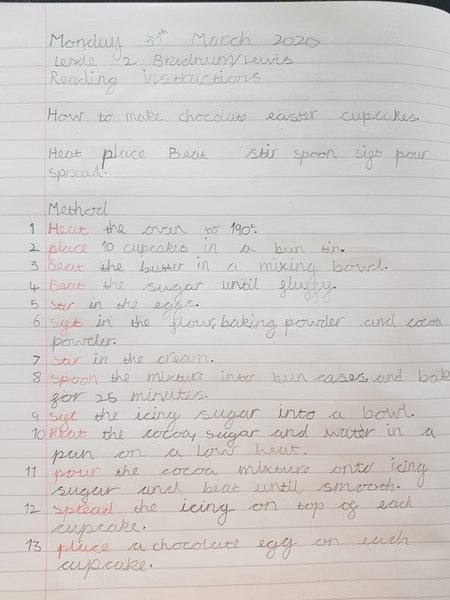 Monday 30th March 2020
Lexie 2 Bradnum/Lewis
Reading instructions
How to make chocolate easter cupcakes.
Heat place Beat stir spoon sigt pour
spread.
Method
1 Heat the oven to 190°.
2 place 10 cupcakes in a bun tin.
3 Beat the butter in a mixing bowl.
4 Beat the sugar until fluffy.
5 Stir in the eggs.
6 sigt in the flour, baking powder and cocoa
powder.
7 Stir in the cream.
8 spoon the mixture into bun cases and bake
for 25 minutes.
9 sigt the icing sugar into a bowl.
10 Heat the cocoa, sugar and water in a
pan on a low heat.
11 pour the cocoa mixture onto icing
sugar and beat until smooth.
12 spread the icing on top of each
cupcake.
13 place a chocolate egg on each
cupcake.